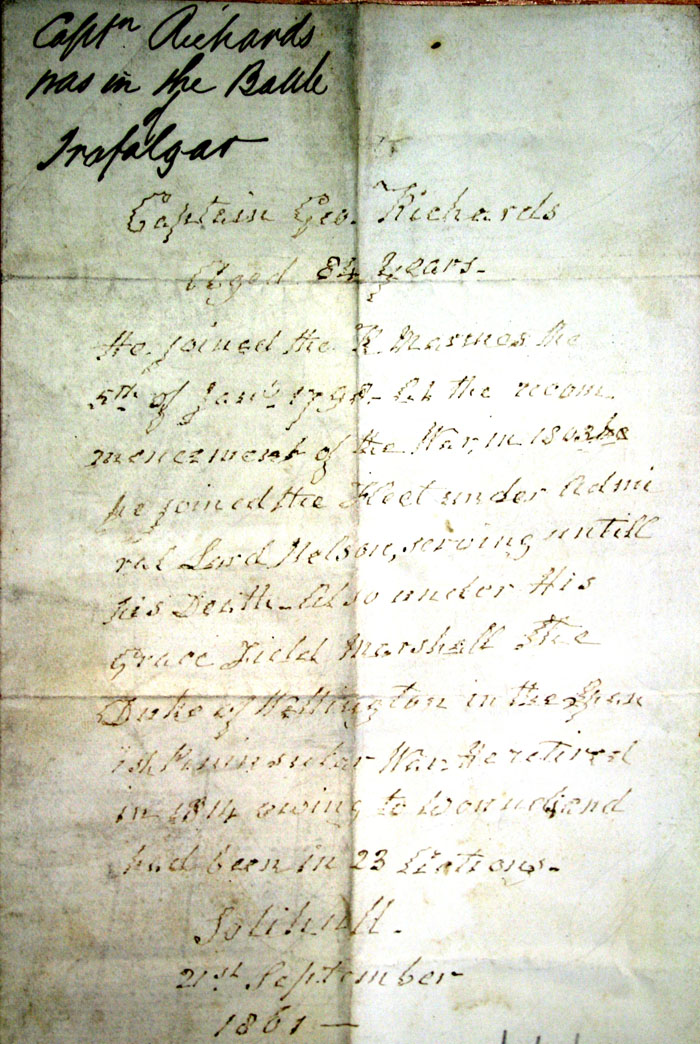 Captn Richards
was in the Battle
of
Trafalgar
Captain Geo. Richards
Aged 84 Years-
He joined the R. Marines the
5th of Jany. 1798- At the recom
mencement of the War, in 1803
he joined the Fleet under Admi
ral Lord Nelson, serving untill
his Death_Also under His
Grace Field Marshall The
Duke of Wellington in the Span
ish Peninsular War. He retired
in 1814 owing to Wounds, and
had been in 23 Actions-
Solihull.
21st September
1861—